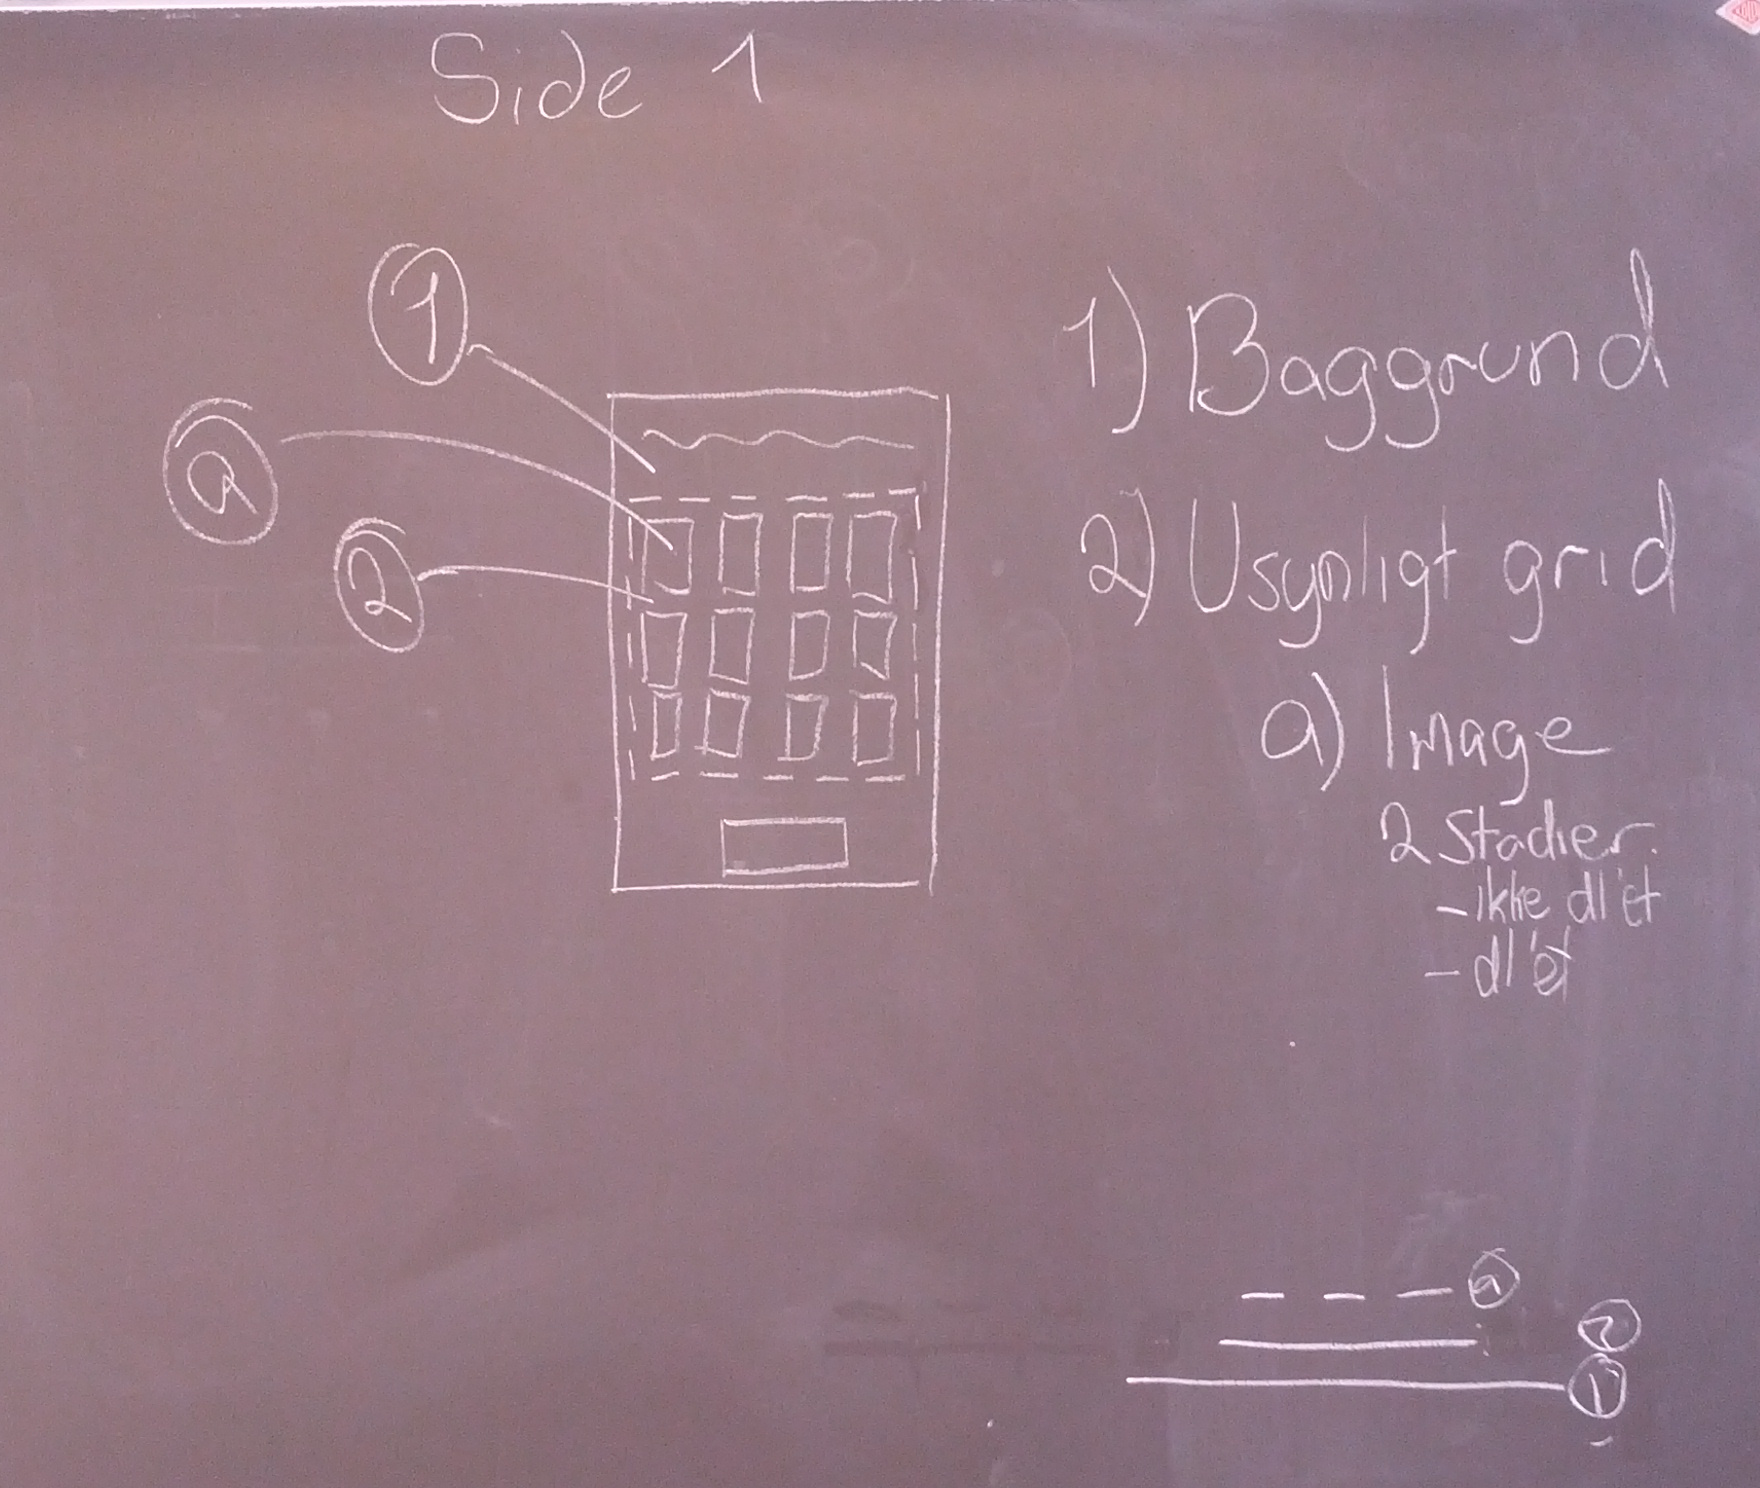 Side 1
1
a
2
1) Baggrund
2) Usynligt grid
a) Image
2 Stadier.
- ikke dl'et
- dl'et
a
2
1